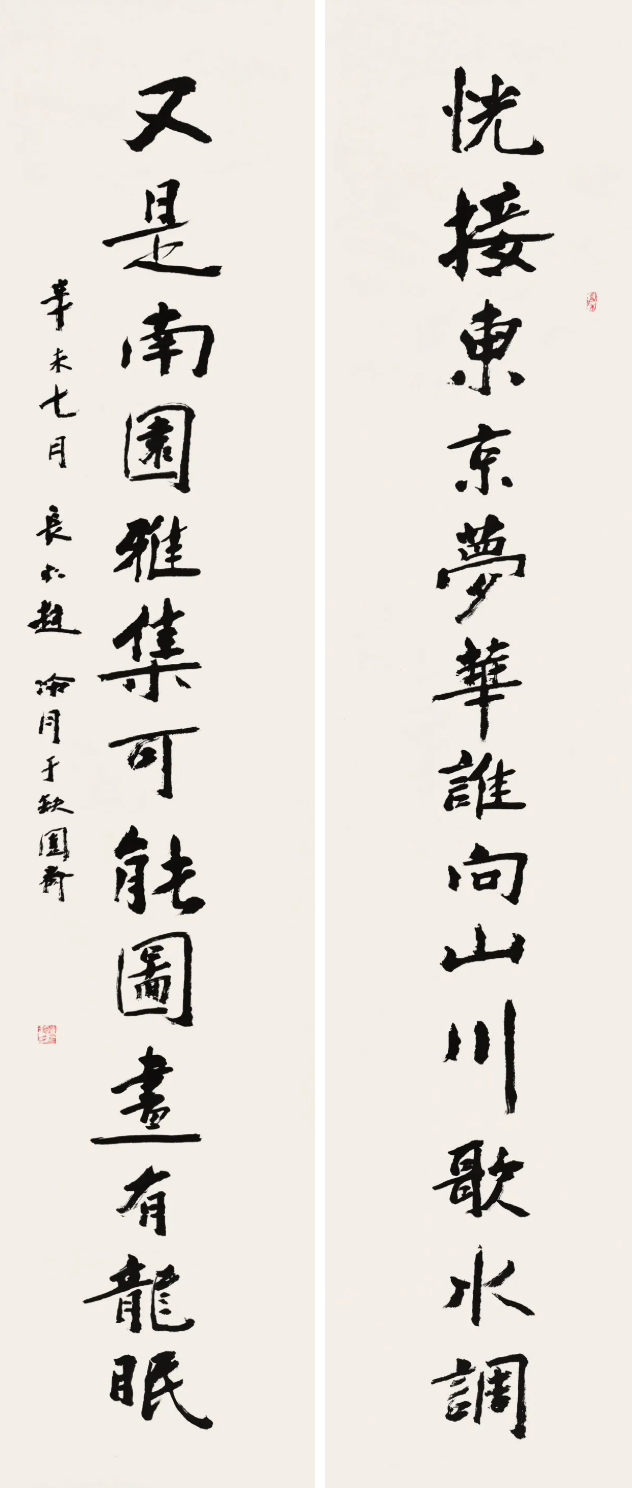 恍接東京夢華誰向山川歌水調
又是南園雅集可能圖畫有龍眠
辛未七月 長公趙冷月于缺圓齋